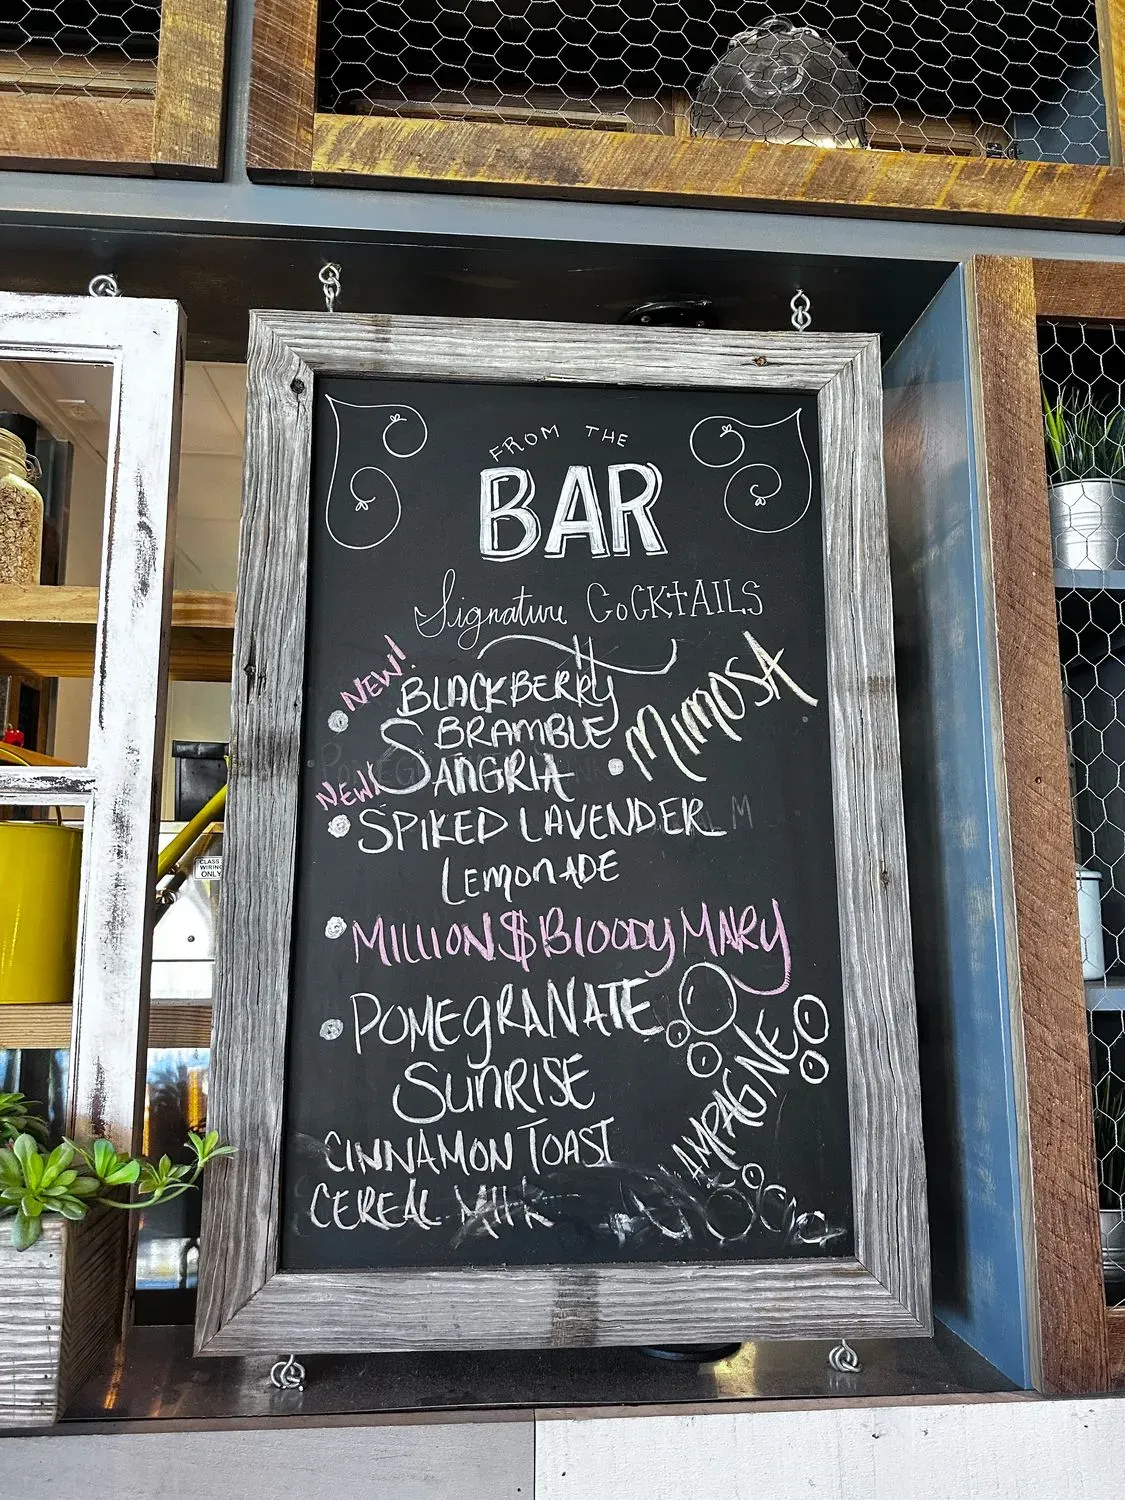 FROM THE
BAR
Signature COCKTAILS
NEW!
BLACKBERRY
BRAMBLE
SANGRIA
MIMOSA
NEW!
SPIKED LAVENDER
LEMONADE
MILLION $ BLOODY MARY
POMEGRANATE
SUNRISE
CINNAMON TOAST
CEREAL MILK
AMPAGNE
CLASS 2
WIRING
ONLY